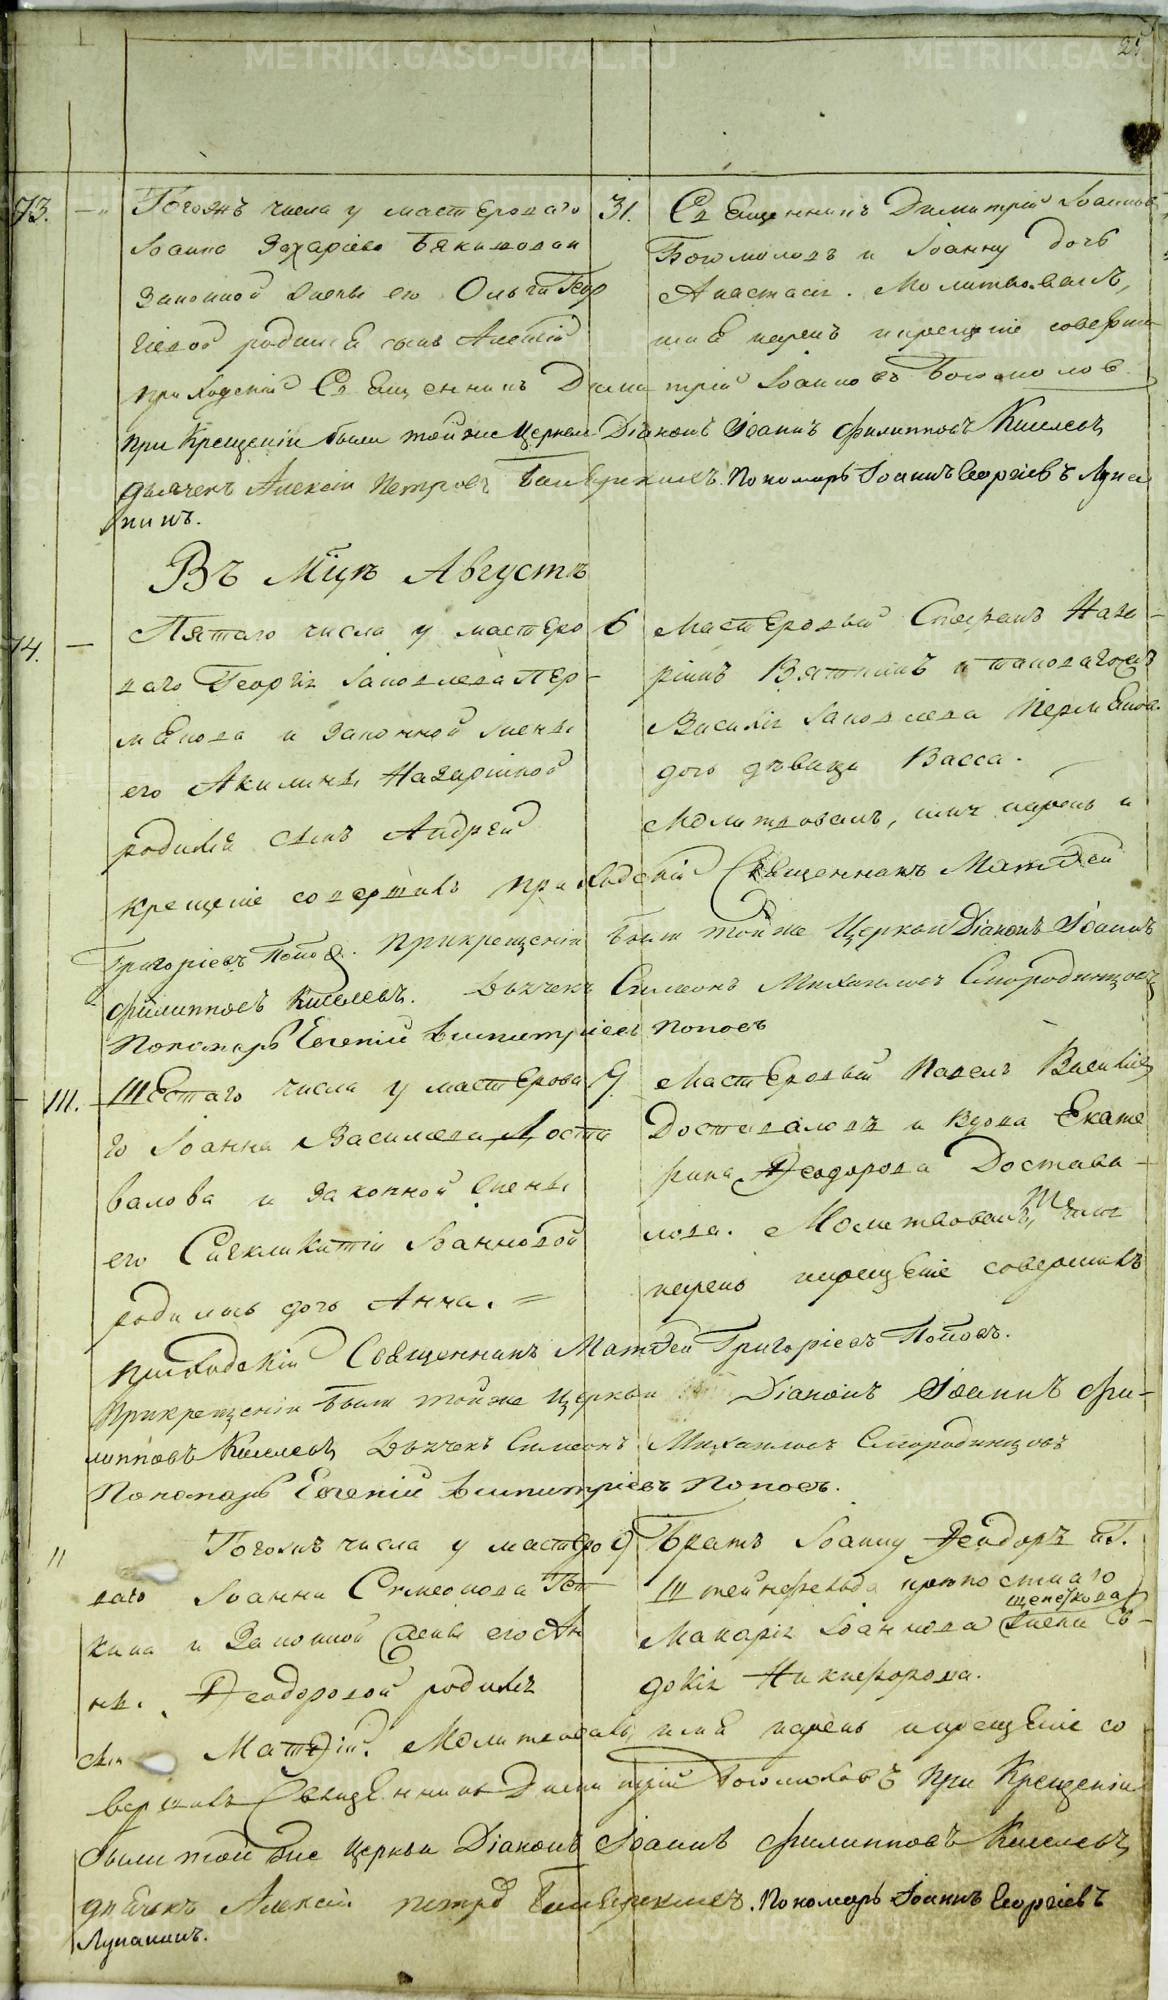 73. Тогожъ числа у мастероваго
Іоанна Захаріева Бякишова и
законной жены его Ольги Геор
гіевой родился сынъ Алексій
31. Священникъ Димитрій Іоаннов
Богомоловъ и Іоанну дочь
Анастасія. Молитвовалъ,
имя нарекъ и крещеніе соверши
приходскій Священникъ Димитрій Іоанновъ Богомолов.
при Крещеніи были тойже Церкви Діаконъ Іоаннъ Филипповъ Киселевъ
дьячекъ Алексій Петровъ Пономарь Іоаннъ Георгіевъ Лупа
нинъ.
Въ М͠цѣ Августѣ
74. Пятаго числа у мастеро
ваго Георгія Іаковлева Пер
мякова и законной жены
его Акилины Назаріиной
родился сынъ Андрей
6 Мастеровый Стефанъ Наза
ріинъ Вяткинъ и таковагожъ
Василія Іаковлева Пермякова
дочь дѣвица Васса.
Молитвовалъ, имя нарекъ и
крещеніе совершилъ приходскій Священникъ Матѳей
Григоріевъ Поповъ. При крещеніи были тойже Церкви Діаконъ Іоаннъ
Филипповъ Киселевъ. Дьячекъ Симеонъ Михайловъ Смородинцовъ
Пономарь Евгеній Димитріевъ Поповъ
111. Шестаго числа у мастерова
го Іоанна Василіева Доста
валова и законной жены
его Сигклитикіи Іоанновой
родилась дочь Анна.
9 Мастеровый Павелъ Василіев
Доставаловъ и вдова Екате
рина Ѳеодорова Достава
лова. Молитвовалъ, имя
нарекъ и крещеніе совершилъ
приходскій Священникъ Матѳей Григоріевъ Поповъ.
При крещеніи были тойже Церкви Діаконъ Іоаннъ Фи-
липповъ Киселевъ Дьячекъ Симеонъ Михайловъ Смородинцовъ
Пономарь Евгеній Димитріевъ Поповъ.
" Тогожъ числа у мастеро
ваго Іоанна Симеонова
кина и законной жены его Ан
ны Ѳеодоровой родился
9 Братъ Іоанну Ѳеодоръ и Г.
Штейнфельда крѣпостнаго
Макарія Іоаннова Щепеткова жена Ев
докія Никифорова.
сын Матѳій. Молитвовалъ, имя нарекъ и крещеніе со
вершилъ Священникъ Димитрій Богомоловъ При Крещеніи
были той же Церкви Діаконъ Іоаннъ Филипповъ Киселевъ
дьячекъ Алексій Петров Пономарь Іоаннъ Георгіевъ
Лупанинъ.
METRIKI.GASO-URAL.RU